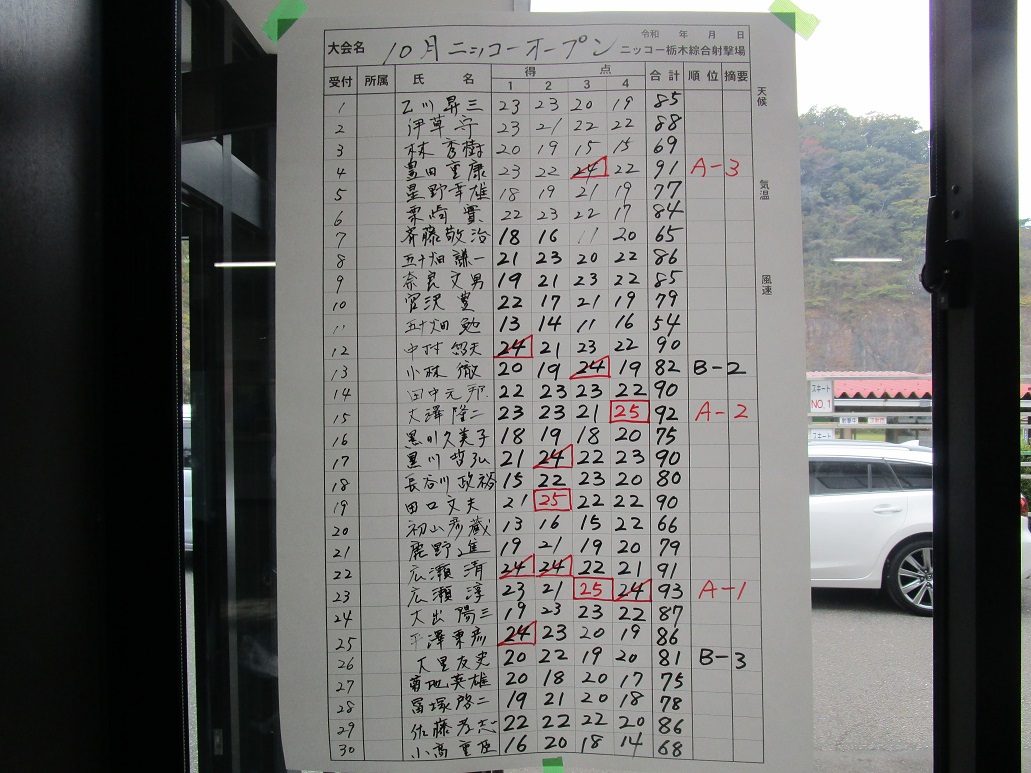 令和 年 月 日
大会名 10月ニッコーオープン ニッコー栃木綜合射撃場
受付 所属 氏 名 得 点 合計 順位 摘要
1 2 3 4
1 乙川昇三 23 23 20 19 85
2 伊草守 23 21 22 22 88
3 林秀樹 20 19 15 15 69
4 豊田重康 23 22 24 22 91 A-3
5 星野幸雄 18 19 21 19 77
6 栗崎實 22 23 22 17 84
7 斉藤敬治 18 16 11 20 65
8 五十畑謙一 21 23 20 22 86
9 奈良文男 19 21 23 22 85
10 宮沢豊 22 17 21 19 79
11 五十畑勉 13 14 11 16 54
12 中村 24 21 23 22 90
13 小林徹 20 19 24 19 82 B-2
14 田中元邦 22 23 23 22 90
15 大澤隆二 23 23 21 25 92 A-2
16 黒川久美子 18 19 18 20 75
17 黒川哲弘 21 24 22 23 90
18 長谷川政裕 15 22 23 20 80
19 田口文夫 21 25 22 22 90
20 初山彦蔵 13 16 15 22 66
21 鹿野進 19 21 19 20 79
22 広瀬清 24 24 22 21 91
23 広瀬淳 23 21 25 24 93 A-1
24 大出陽三 19 23 23 22 87
25 平澤東彦 24 23 20 19 86
26 大里友史 20 22 19 20 81 B-3
27 菊地英雄 20 18 20 17 75
28 冨塚啓二 19 21 20 18 78
29 佐藤孝志 22 22 22 20 86
30 小高重臣 16 20 18 14 68
天候
気温
風速
スキート
NO.1
スキート